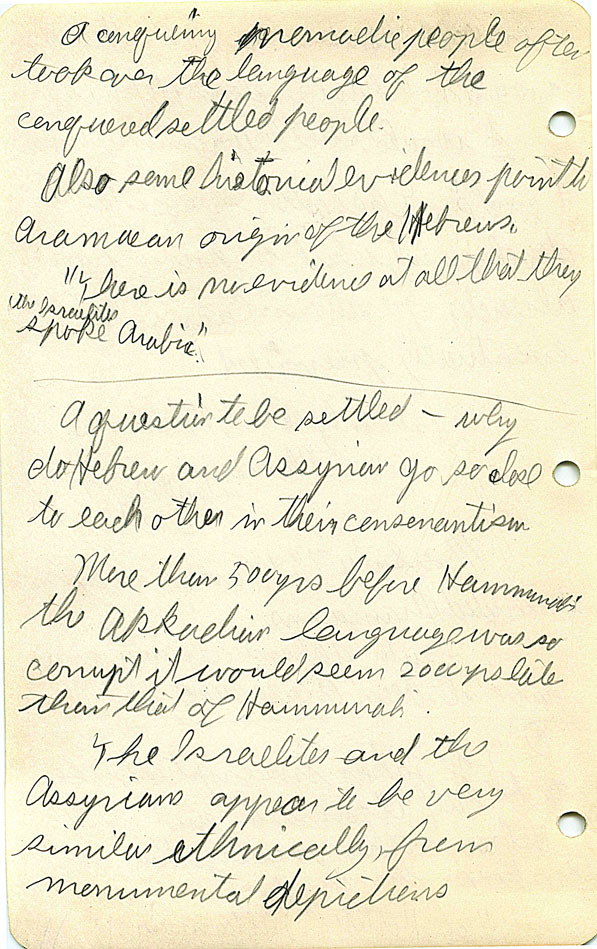 A conquering nomadic people often
took over the language of the
conquered settled people.
Also some historical evidences point to
Aramaean origin of the Hebrews.
"There is no evidence at all that they
(the Israelites
spoke Arabic"
A question to be settled – why
do Hebrew and Assyrian go so close
to each other in their consonantism
More than 500 yrs before Hammurabi
the Akkadian language was so
corrupt it would seem 200 yrs later
than that of Hammurabi.
The Israelites and the
Assyrians appear to be very
similar ethnically, from
monumental depictions